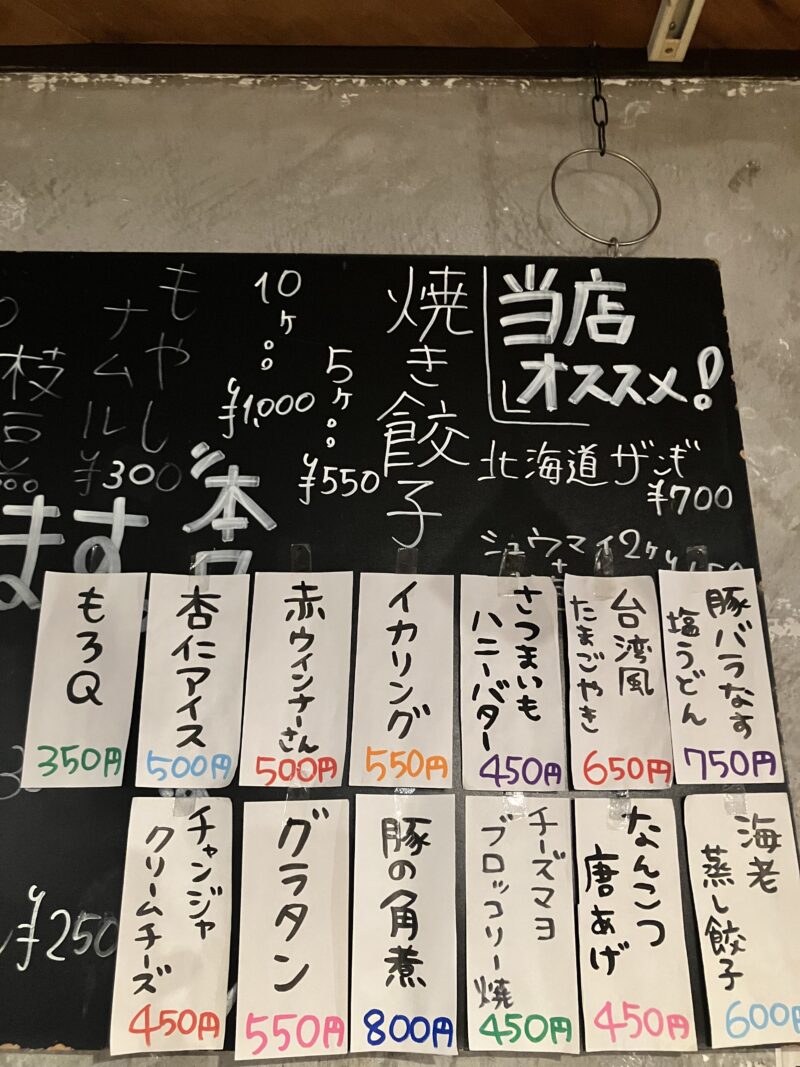 当店
オススメ!
北海道ザンギ
¥700
シュウマイ2ケ
焼き餃子
5ケ…
¥550
10ケ…
¥1,000
もやし
ナムル
¥300
枝豆
本日
ます
¥250
豚バラなす
塩うどん
750円
台湾風
たまごやき
650円
さつまいも
ハニーバター
450円
イカリング
550円
赤ウインナーさん
500円
杏仁アイス
500円
もろQ
350円
海老
蒸し餃子
600円
なんこつ
唐あげ
450円
チーズマヨ
ブロッコリー焼
450円
豚の角煮
800円
グラタン
550円
チャンジャ
クリームチーズ
450円